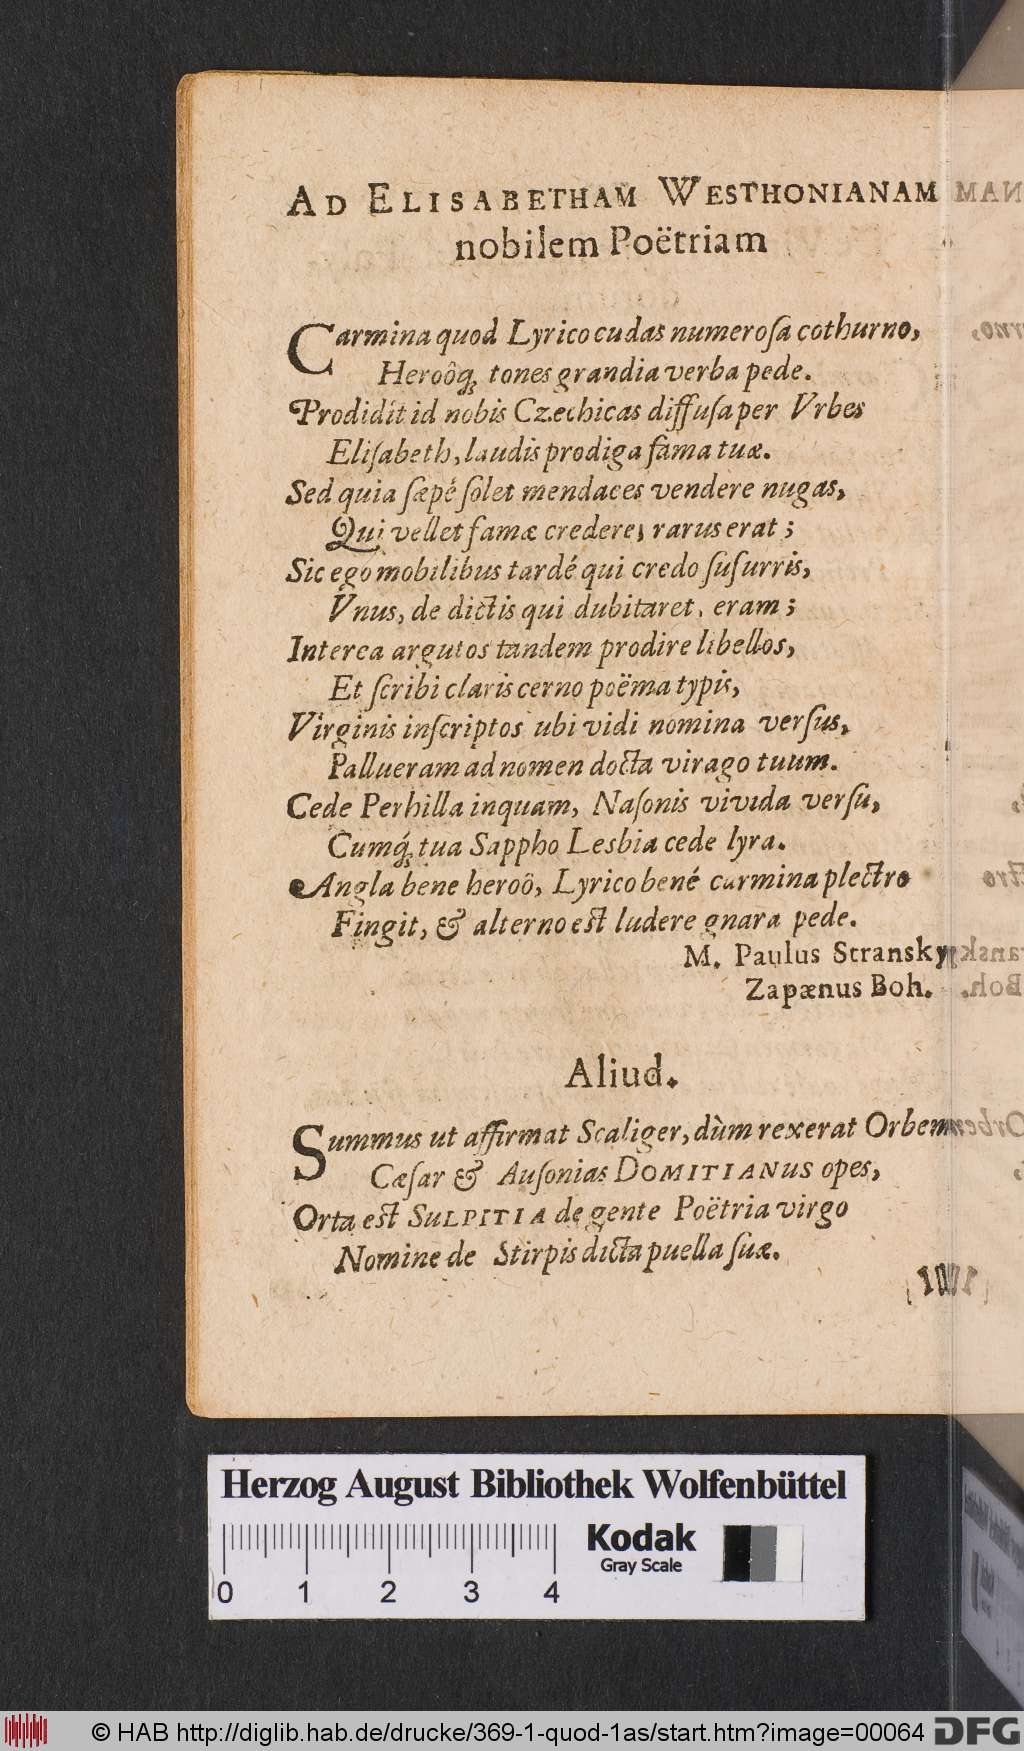 AD ELISABETHAM WESTHONIANAM
nobilem Poëtriam
Carmina quod Lyrico cudas numeroſa cothurno,
Heroôq́ꝫ tones grandia verba pede.
Prodidit id nobis Czechicas diffuſa per Vrbes
Eliſabeth, laudis prodiga fama tuæ.
Sed quia ſæpé ſolet mendaces vendere nugas,
Qui vellet famæ credere, rarus erat;
Sic ego mobilibus tardé qui credo ſuſurris,
Vnus, de dictis qui dubitaret, eram;
Interea argutos tandem prodire libellos,
Et ſcribi claris cerno poëma typis,
Virginis inſcriptos ubi vidi nomina verſus,
Pallueram ad nomen docta virago tuum.
Cede Perhilla inquam, Naſonis vivida verſu,
Cumq́ꝫ tua Sappho Lesbia cede lyra.
Angla bene heroô, Lyrico bené carmina plectro
Fingit, & alterno est ludere gnara pede.
M. Paulus Stransky
Zapænus Boh.
Aliud.
Summus ut affirmat Scaliger, dùm rexerat Orbem
Cæſar & Auſonias DOMITIANUS opes,
Orta est SULPITIA de gente Poëtria virgo
Nomine de Stirpis dicta puella ſuæ.
Herzog August Bibliothek Wolfenbüttel
0 1 2 3 4
Kodak
Gray Scale
© HAB http://diglib.hab.de/drucke/369-1-quod-1as/start.htm?image=00064
DFG